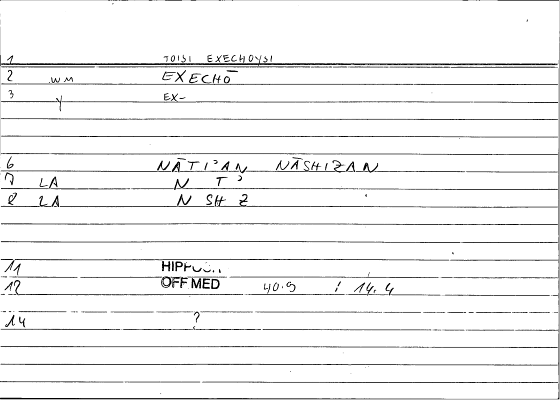 1 TOISI EXECHOYSI
2 WM EXECHŌ
3 Y EX-
6 NĀTI'AN NĀSHIZAN
7 LA N T'
8 LA N SH Z
11
12 OFF MED 40.9 : 14.4
14 ?